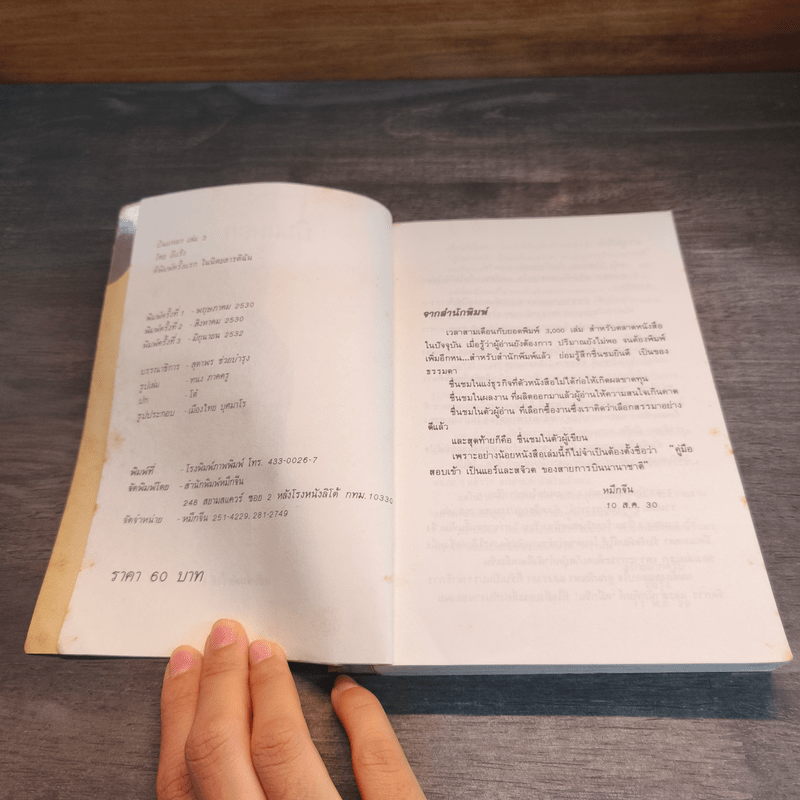 เป็นแคชฯ เล่ม 2
โดย
ตีพิมพ์ครั้งแรก ในนิตยสารดิฉัน
พิมพ์ครั้งที่ 1 - พฤษภาคม 2530
พิมพ์ครั้งที่ 2 - สิงหาคม 2530
พิมพ์ครั้งที่ 3 - มิถุนายน 2532
บรรณาธิการ - สุดาพร ช่วยบำรุง
รูปเล่ม - ทนง ภาคครู
ปก - โต้
รูปประกอบ - เมืองไทย บุศมาโร
พิมพ์ที่ - โรงพิมพ์ภาพพิมพ์ โทร. 433-0026-7
จัดพิมพ์โดย - สำนักพิมพ์หมึกจีน
248 สยามสแควร์ ซอย 2 หลังโรงหนังลิโด้ กทม. 10330
จัดจำหน่าย - หมึกจีน 251-4229, 281-2749
ราคา 60 บาท
จากสำนักพิมพ์
เวลาสามเดือนกับยอดพิมพ์ 3,000 เล่ม สำหรับตลาดหนังสือ
ในปัจจุบัน เมื่อรู้ว่าผู้อ่านยังต้องการ ปริมาณยังไม่พอ จนต้องพิมพ์
เพิ่มอีกหน...สำหรับสำนักพิมพ์แล้ว ย่อมรู้สึกชื่นชมยินดี เป็นของ
ธรรมดา
ชื่นชมในแง่ธุรกิจที่ตัวหนังสือไม่ได้ก่อให้เกิดผลขาดทุน
ชื่นชมในผลงาน ที่ผลิตออกมาแล้วผู้อ่านให้ความสนใจเกินคาด
ชื่นชมในตัวผู้อ่าน ที่เลือกซื้องานซึ่งเราคิดว่าเลือกสรรมาอย่าง
ดีแล้ว
และสุดท้ายก็คือ ชื่นชมในตัวผู้เขียน
เพราะอย่างน้อยหนังสือเล่มนี้ก็ไม่จำเป็นต้องตั้งชื่อว่า "คู่มือ
สอบเข้า เป็นแอร์และสจ๊วต ของสายการบินนานาชาติ"
หมึกจีน
10 ส.ค. 30